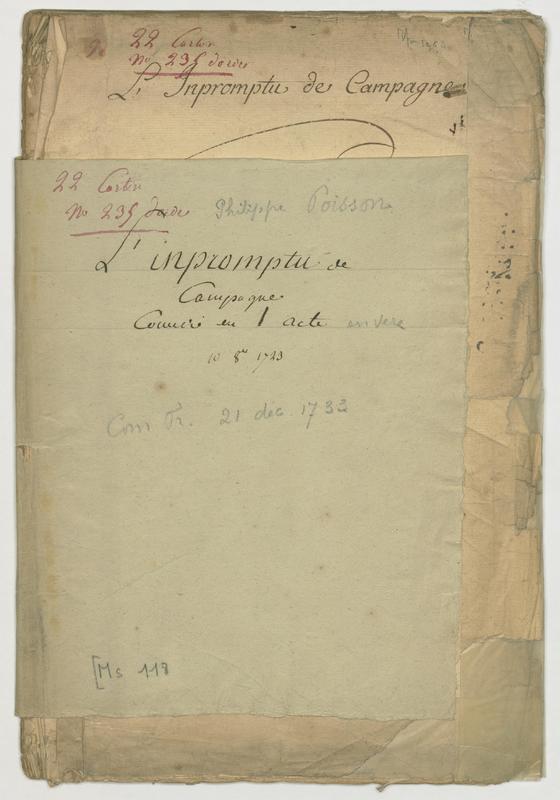 22 Carton
No 235 dordre
L'Inpromptu de Campagne
22 Carton
No 235 dordre Philippe Poisson
L'inpromptu de
Campagne
Comedie en 1 acte en vers
10 8re 1723
Com Fr. 21 déc. 1733
[Ms 118